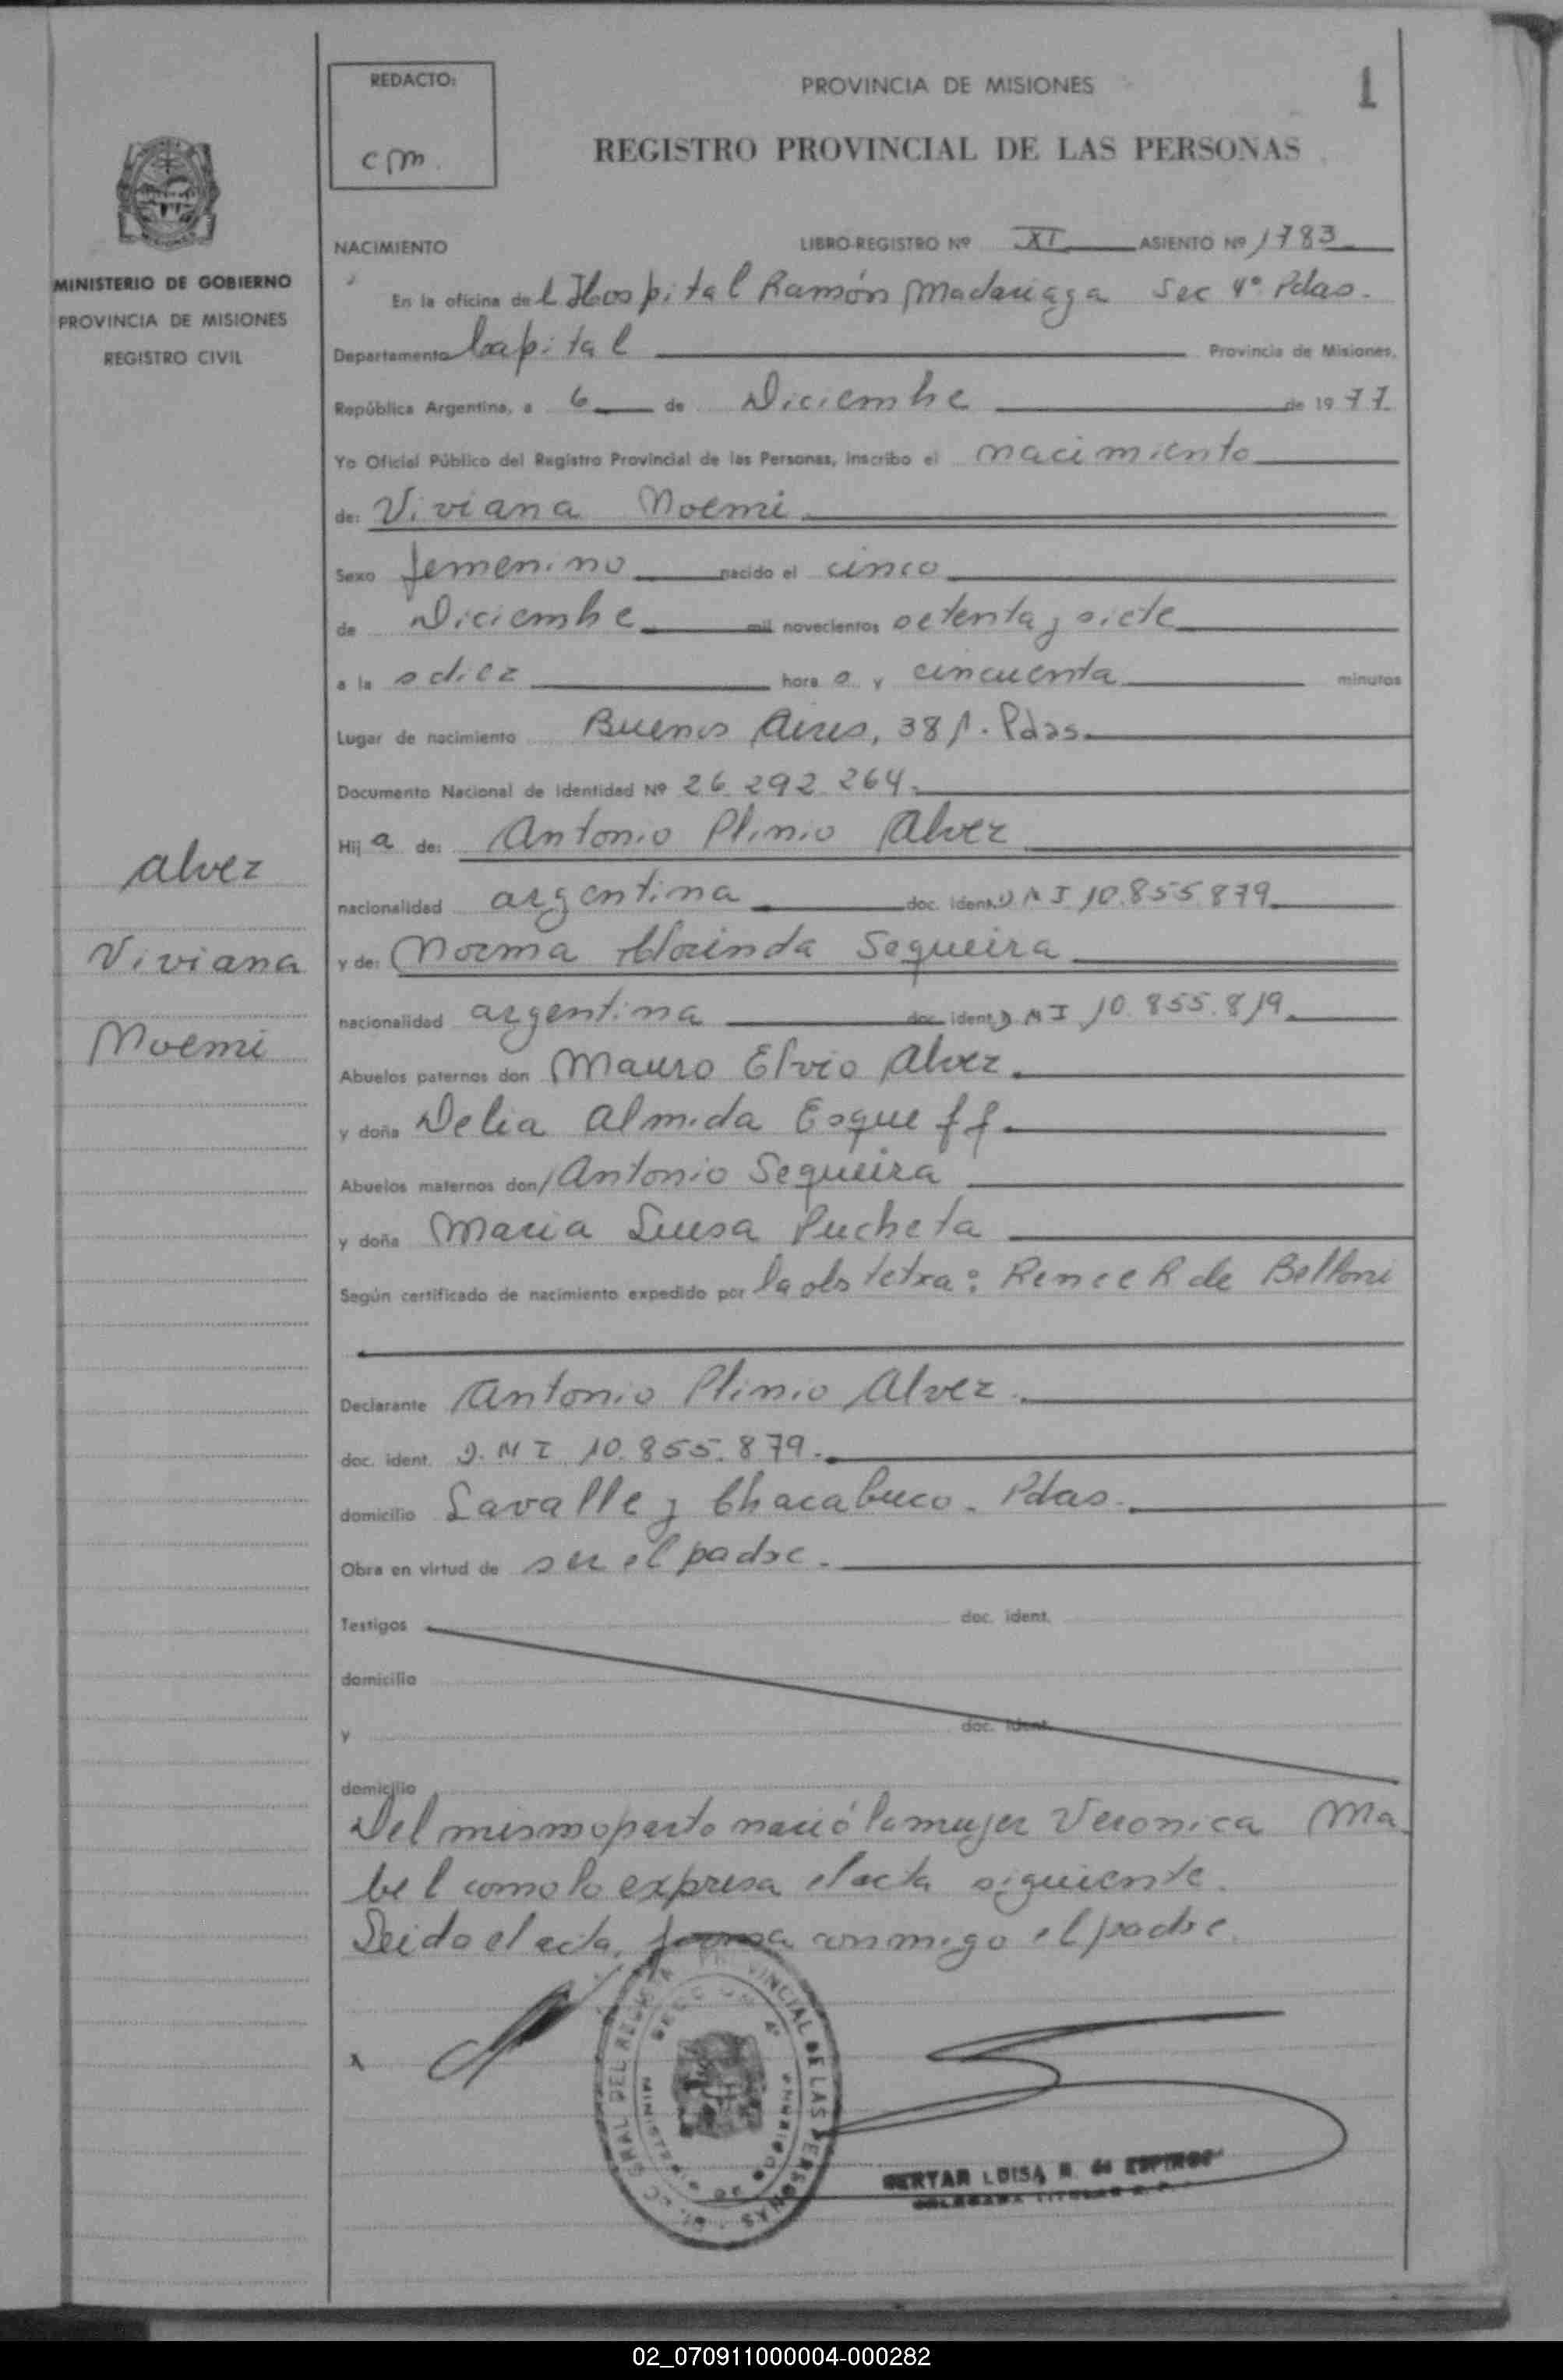 REDACTO:
cm.
PROVINCIA DE MISIONES
1
REGISTRO PROVINCIAL DE LAS PERSONAS
MINISTERIO DE GOBIERNO
PROVINCIA DE MISIONES
REGISTRO CIVIL
NACIMIENTO LIBRO-REGISTRO Nº XI ASIENTO Nº 1783
En la oficina del Hospital Ramón Madariaga Sec 4º Pdas.
Departamento Capital Provincia de Misiones,
República Argentina, a 6 de Diciembre de 1977
Yo Oficial Público del Registro Provincial de las Personas, inscribo el nacimiento
de: Viviana Noemi
Sexo femenino nacido el cinco
de Diciembre mil novecientos setenta y siete
a las diez horas y cincuenta minutos
Lugar de nacimiento Buenos Aires, 381. Pdas.
Documento Nacional de Identidad Nº 26.292.264.
Hija de: Antonio Plinio Alvez
nacionalidad argentina doc. ident. D N I 10.855.879
y de: Norma Florinda Sequeira
nacionalidad argentina doc. ident. D. N I 10.855.819
Abuelos paternos don Mauro Elvio Alvez.
y doña Delia Almida Esqueff.
Abuelos maternos don Antonio Sequeira
y doña Maria Luisa Pucheta
Según certificado de nacimiento expedido por la obstetra: Renee R de Belloni
Declarante Antonio Plinio Alvez.
doc. ident. D. N I 10.855.879.
domicilio Lavalle y Chacabuco. Pdas.
Obra en virtud de ser el padre.
Testigos doc. ident.
domicilio
y doc. ident.
domicilio
Del mismo parto nació la mujer Veronica Ma
bel como lo expresa el acta siguiente.
Leido el acta, firma conmigo el padre.
x
PROVINCIAL DE LAS PERSONAS
SECCION 4º
LUISA
Alvez
Viviana
Noemi
02_070911000004-000282